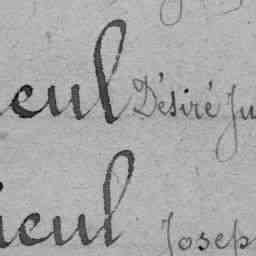 ieul Désiré Ju
ieul Josep